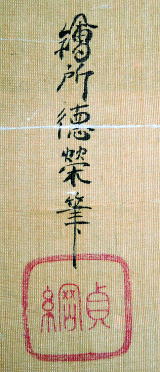 繪所德榮筆
貞綱